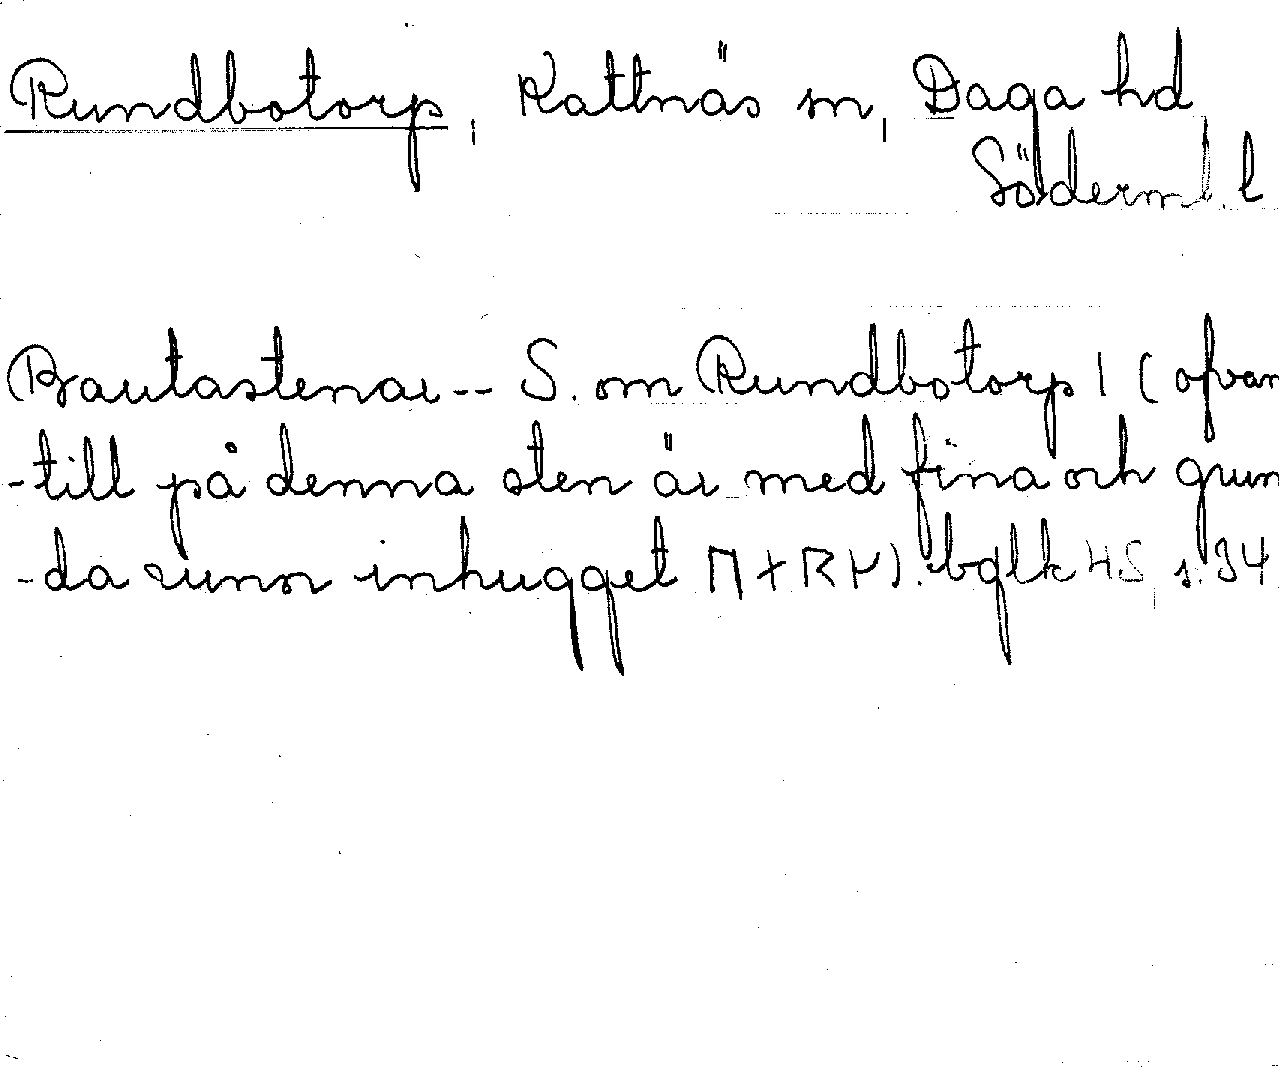 Rundbotorp, Kattnäs sn, Daga hd
Söderml. l
Bautastenar-- S. om Rundbotorp 1 (ofvan
-till på denna sten är med fina och grun
-da runor inhugget ᚢᚼᚱᚴ). bglk HS s. 34